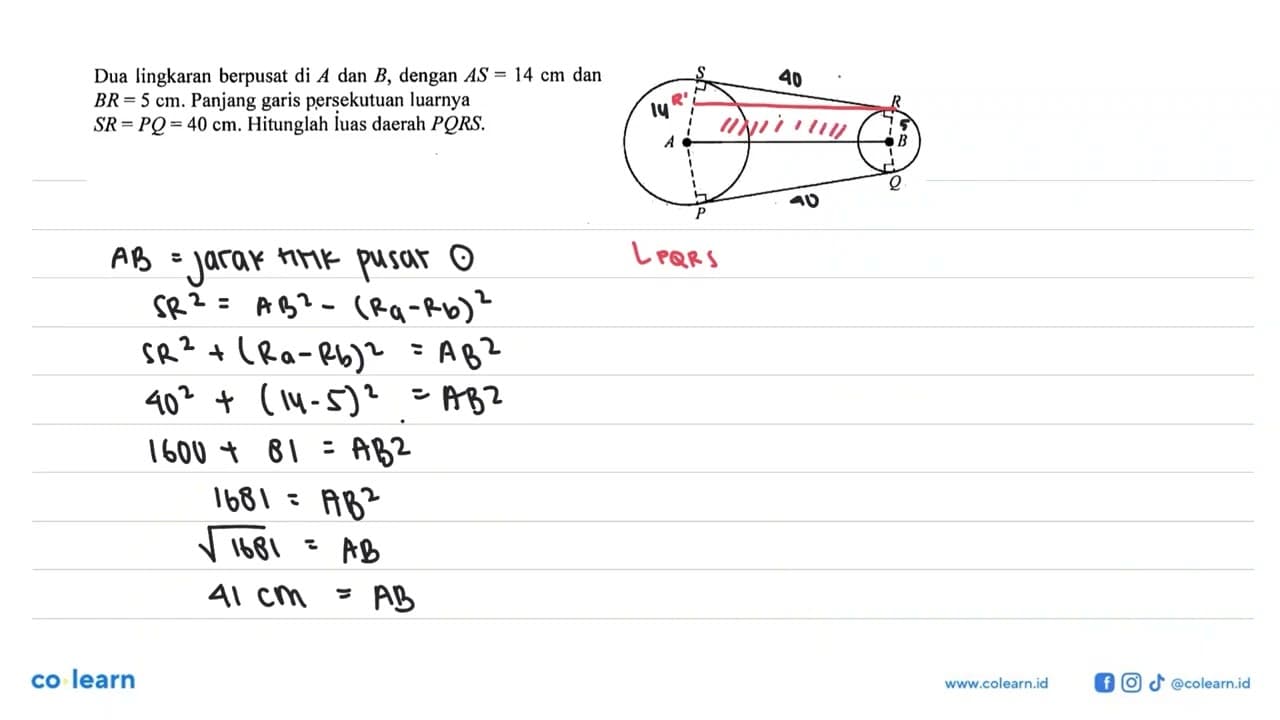 Dua lingkaran berpusat di A dan B, dengan AS = 14 cm dan
BR = 5 cm. Panjang garis persekutuan luarnya
SR = PQ = 40 cm. Hitunglah luas daerah PQRS.
S
40
R
R'
14
5
A
B
Q
40
P
AB = jarak titik pusat ⊙
SR² = AB² - (Ra-Rb)²
SR² + (Ra-Rb)² = AB²
40² + (14-5)² = AB²
1600 + 81 = AB²
1681 = AB²
√1681 = AB
41 cm = AB
L PQRS
co learn
www.colearn.id
@colearn.id